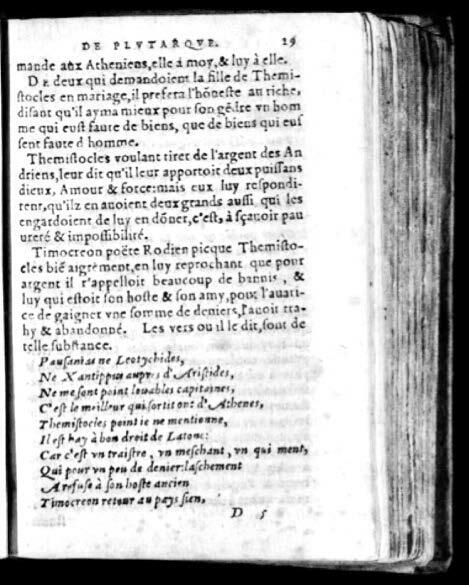 DE PLVTARQVE. 29
mande aux Atheniens, elle à moy, & luy à elle.
DE deux qui demandoient la fille de Themi-
stocles en mariage, il prefera l'hõneste au riche,
disant qu'il ayma mieux pour son gẽdre vn hom
me qui eust faute de biens, que de biens qui eus
sent faute d homme.
Themistocles voulant tirer de l'argent des An
driens, leur dit qu'il leur apportoit deux puissan
dieux, Amour & force: mais eux luy respondi-
rent, qu'ilz en auoient deux grands aussi qui les
engardoient de luy en dõner, c'est, à sçauoir pau
ureté & impossibilité.
Timocreon poëte Rodien picque Themisto-
cles biẽ aigrement, en luy reprochant que pour
argent il r'appelloit beaucoup de bannis, &
luy qui estoit son hoste & son amy, pour l'auari-
ce de gaigner vne somme de deniers, l'auoit tra-
hy & abandonné. Les vers ou il le dit, sont de
telle substance.
Pausanias ne Leotychides,
Ne Xantippus aupres d'Aristides,
Ne me sont point louables capitaines,
C'est le meilleur qui sortit onc d'Athenes,
Themistocles point ie ne mentionne,
Il est hay à bon droit de Latone:
Car c'est vn traistre, vn meschant, vn qui ment,
Qui pour vn peu de denier laschement
A refusé à son hoste ancien
Timocreon retour au pays sien,
D 5